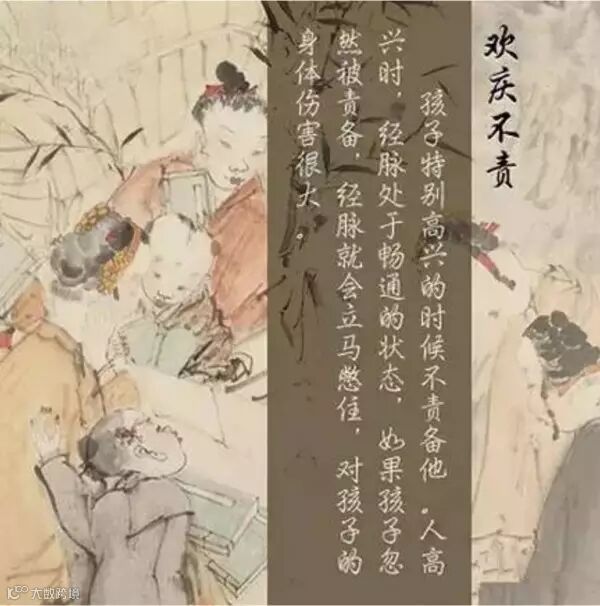 欢庆不责
孩子特别高兴的时候不责备他。人高
兴时，经脉处于畅通的状态，如果孩子忽
然被责备，经脉就会立马憋住，对孩子的
身体伤害很大。
大数跨境